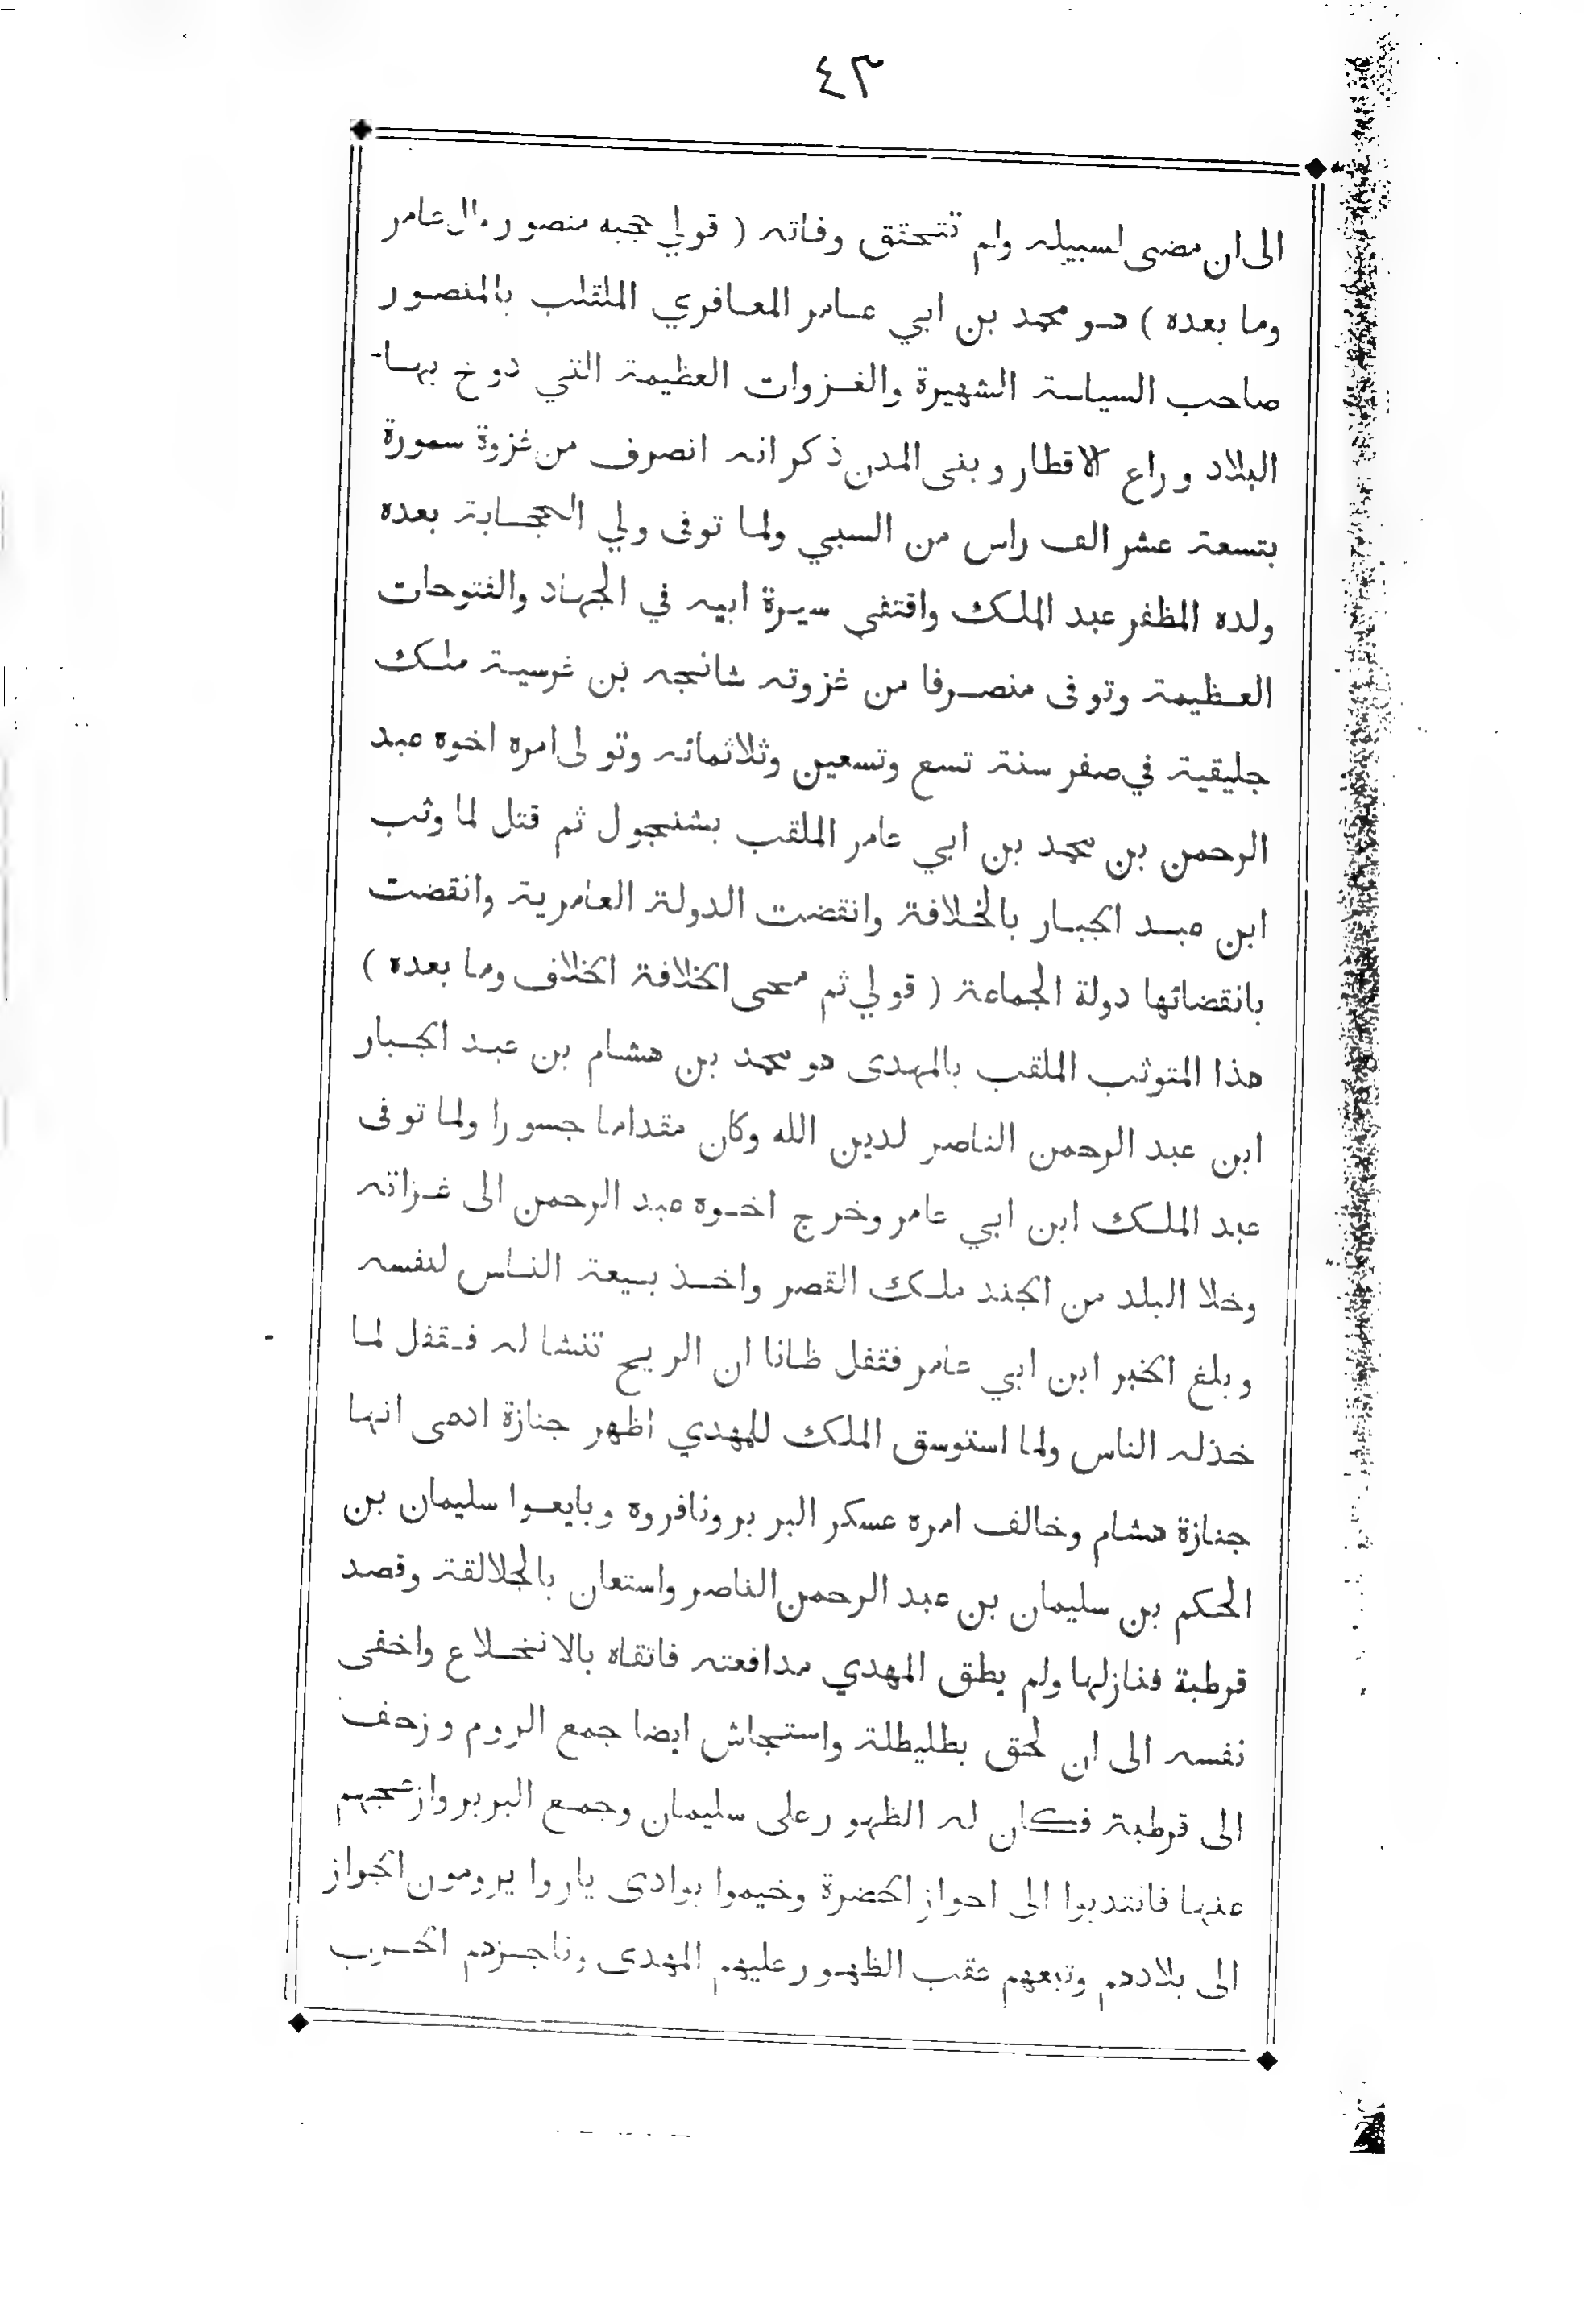 ٤٣
الى ان مضى لسبيله ولم تتحقق وفاته ( قولي حجبه منصور ءال عامر
وما بعده ) هو محمد بن ابي عامر المعافري الملقب بالمنصور
صاحب السياسة الشهيرة والغزوات العظيمة التي دوخ بها
البلاد وراع الاقطار وبنى المدن ذكر انه انصرف من غزوة سمورة
بتسعة عشر الف راس من السبي ولما توفى ولي الحجابة بعده
ولده المظفر عبد الملك واقتفى سيرة ابيه في الجهاد والفتوحات
العظيمة وتوفى منصرفا من غزوته شانجه بن غرسية ملك
جليقية في صفر سنة تسع وتسعين وثلاثمائه وتولى امره اخوه عبد
الرحمن بن محمد بن ابي عامر الملقب بشنجول ثم قتل لما وثب
ابن عبد الجبار بالخلافة وانقضت الدولة العامرية وانقضت
بانقضائها دولة الجماعة ( قولي ثم محى الخلافة الخلاف وما بعده )
هذا المتوثب الملقب بالمهدى هو محمد بن هشام بن عبد الجبار
ابن عبد الرحمن الناصر لدين الله وكان مقداما جسورا ولما توفى
عبد الملك ابن ابي عامر وخرج اخوه عبد الرحمن الى غزاته
وخلا البلد من الجند ملك القصر واخذ بيعة الناس لنفسه
وبلغ الخبر ابن ابي عامر فقفل ظانا ان الريح تنشا له فقفل لما
خذله الناس ولما استوسق الملك للمهدي اظهر جنازة ادعى انها
جنازة هشام وخالف امره عسكر البربر ونافروه وبايعوا سليمان بن
الحكم بن سليمان بن عبد الرحمن الناصر واستعان بالجلالقة وقصد
قرطبة فنازلها ولم يطق المهدي مدافعته فاتقاه بالانخلاع واخفى
نفسه الى ان لحق بطليطلة واستجاش ايضا جمع الروم وزحف
الى قرطبة فكان له الظهور على سليمان وجمع البربر وازعجهم
عنها فانتدبوا الى احواز الخضرة وخيموا بوادى ياروا يرومون الجواز
الى بلادهم وتبعهم عقب الظهور عليهم المهدى وناجزهم الحرب